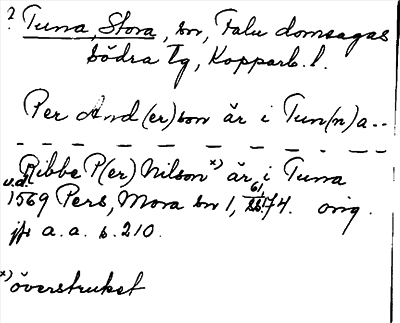 ? Tuna, Stora, sn, Falu domsagas
södra tg, Kopparb. l.
Per And(er)son är i Tun(n)a--
Ribbe P(er) Nilson x) är i Tuna
u.å.
1569 Pers, Mora sn 1, 61, 74. orig.
jfr a.a. s. 210.
x) överstruket